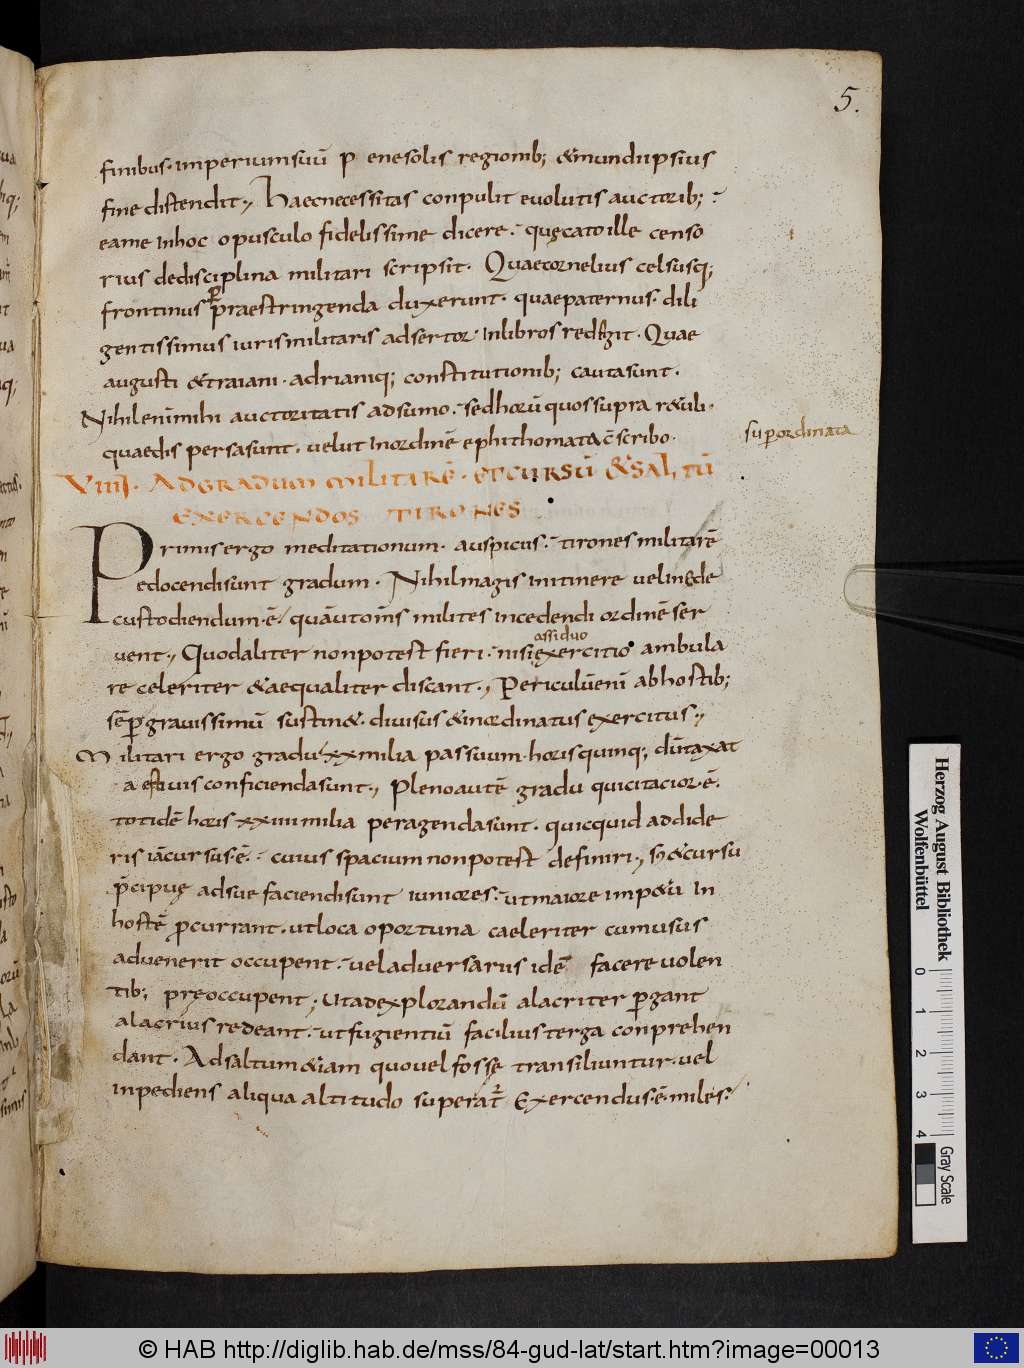 5.
finibus · imperium suū p̄ ene solis regionib; & mundi ipsius
fine distendit ., Haec necessitas conpulit evolutis auctorib;
eame inhoc opusculo fidelissime dicere · quę cato ille censo
rius dedisciplina militari scripsit · Quae cornelius celsus q;
frontinus praestringenda duxerunt · quae paternus · dili
gentissimus iuris militaris adsertor · Inlibros redegit · Quae
augusti & traiani · adrianiq; constitutionib; cauta sunt ·
Nihil enim̄ mihi auctoritatis adsumo · sed horū quos supra r&uli ·
superordinata
quae dispersa sunt · velut inordinē ephithomata c̄scribo ·
VIIII · AD GRADUM MILITARĒ · ET CURSŪ & SALTŪ
EXERCENDOS TIRONES
Primis ergo meditationum · auspiciis · tirones militarē
edocendi sunt gradum · Nihil magis initinere vel
custodiendum · ē · quā ut om̄s milites incedendi ordinē ser
vent ., Quod aliter non potest fieri · nisi
assiduo
exercitio ambula
re celeriter & aequaliter discant ., Periculū enī ab hostib;
sēp gravissimū sustin& · divisus & inordinatus exercitus .,
Militari ergo gradu · xx milia passuum · horis quinq; dūtaxat
aestivis conficienda sunt ., Pleno autē gradu qui citacior · ē ·
totidē horis xxiiii milia peragenda sunt · quicquid addide
ris iā cursus · ē · cuius spacium non potest definiri ., s; & cursu
p̄cipuę adsue faciendi sunt iuniores · ut maiore imp&ū In
hostē procurrant · ut loca oportuna caeleriter cum usus
advenerit occupent · vel adversariis idē facere volen
tib; pręoccupent ; Ut ad explorandū alacriter pergant
alacrius redeant · ut fugientiū facilius terga conprehen
dant · Ad saltum &iam quo vel fosse transiliuntur · vel
inpediens aliqua altitudo superat̄ Exercendus · ē · miles ·
Herzog August Bibliothek
Wolfenbüttel
0 1 2 3 4
Gray Scale
© HAB http://diglib.hab.de/mss/84-gud-lat/start.htm?image=00013